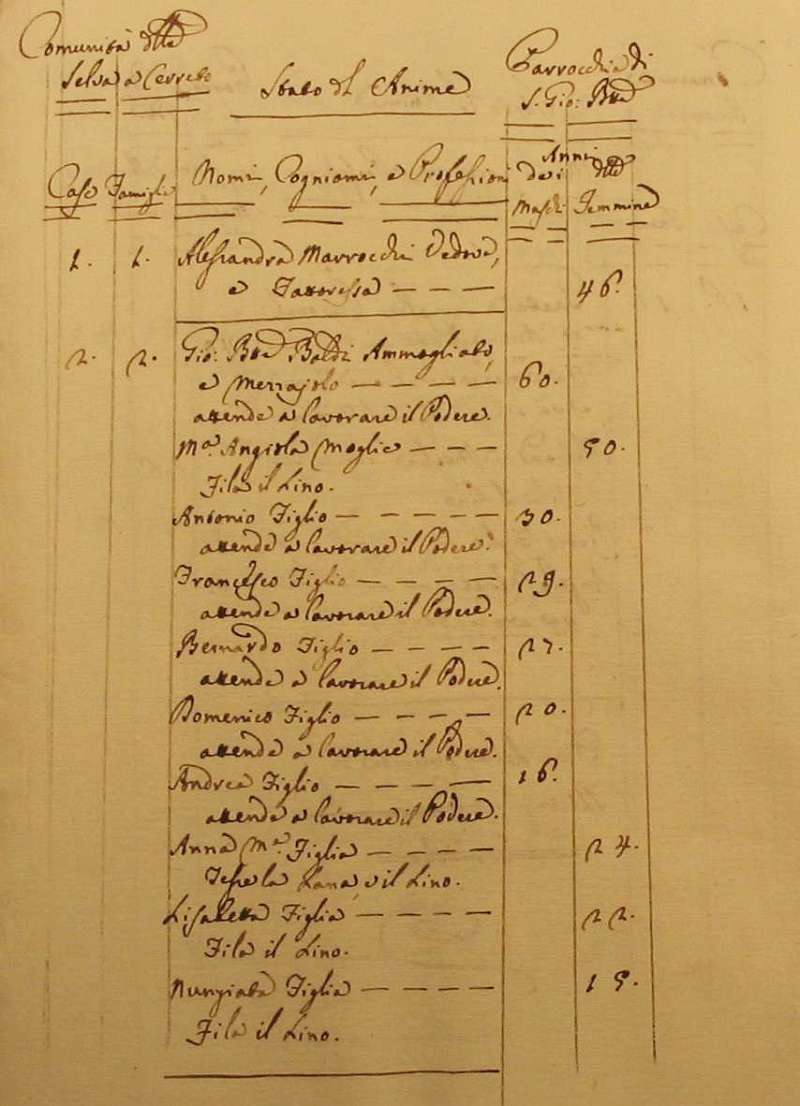 Comunità della
Selva a Cerreto
Stato dl Anime
Parrochia di
S. Gio: Bta
Case Famiglie Nomi, Cogniomi, e Professioni Anni
dei delle
Maschi Femmine
1. 1. Alessandra Marrocchi Vedova,
e Fattoressa — — — — 46.
2. 2. Gio: Bta Baldi Ammogliato,
e Mezzajolo — — — — 60.
attende a lavorare il Podere.
Ma. Angiola Moglie — — — 50.
Fila il Lino.
Antonio Figlio — — — — — 30.
attende a lavorare il Podere.
Francesco Figlio — — — — 29.
attende a lavorare il Podere.
Bernardo Figlio — — — — 27.
attende a lavorare il Podere.
Domenico Figlio — — — — 20.
attende a lavorare il Podere.
Andrea Figlio — — — — 16.
attende a lavorare il Podere.
Anna Ma. Figlia — — — — 24.
Tesse la Lana e il Lino.
Lisabetta Figlia — — — — 22.
Fila il Lino.
Nunziata Figlia — — — — 19.
Fila il Lino.